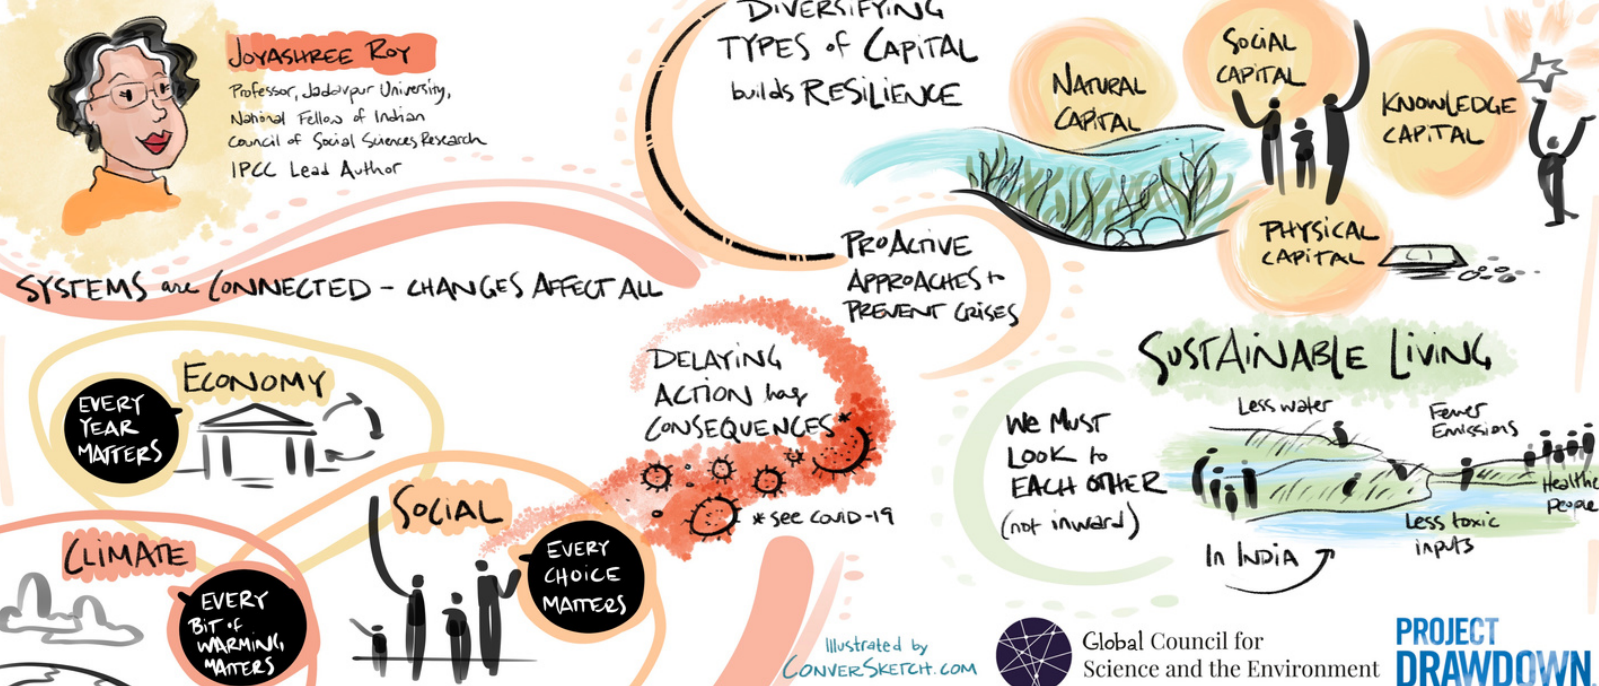 JOYASHREE ROY
Professor, Jadavpur University,
National Fellow of Indian
Council of Social Sciences Research
IPCC Lead Author
SYSTEMS are CONNECTED - CHANGES AFFECT ALL
ECONOMY
EVERY
YEAR
MATTERS
SOCIAL
EVERY
CHOICE
MATTERS
CLIMATE
EVERY
BIT of
WARMING
MATTERS
DELAYING
ACTION has
CONSEQUENCES*
*see COVID-19
DIVERSIFYING
TYPES of CAPITAL
builds RESILIENCE
PROACTIVE
APPROACHES to
PREVENT CRISES
NATURAL
CAPITAL
SOCIAL
CAPITAL
KNOWLEDGE
CAPITAL
PHYSICAL
CAPITAL
SUSTAINABLE LIVING
WE MUST
LOOK to
EACH OTHER
(not inward)
Less water
Fewer
Emissions
Healthie
People
Less toxic
inputs
In INDIA
Illustrated by
CONVERSKETCH.COM
Global Council for
Science and the Environment
PROJECT
DRAWDOWN.